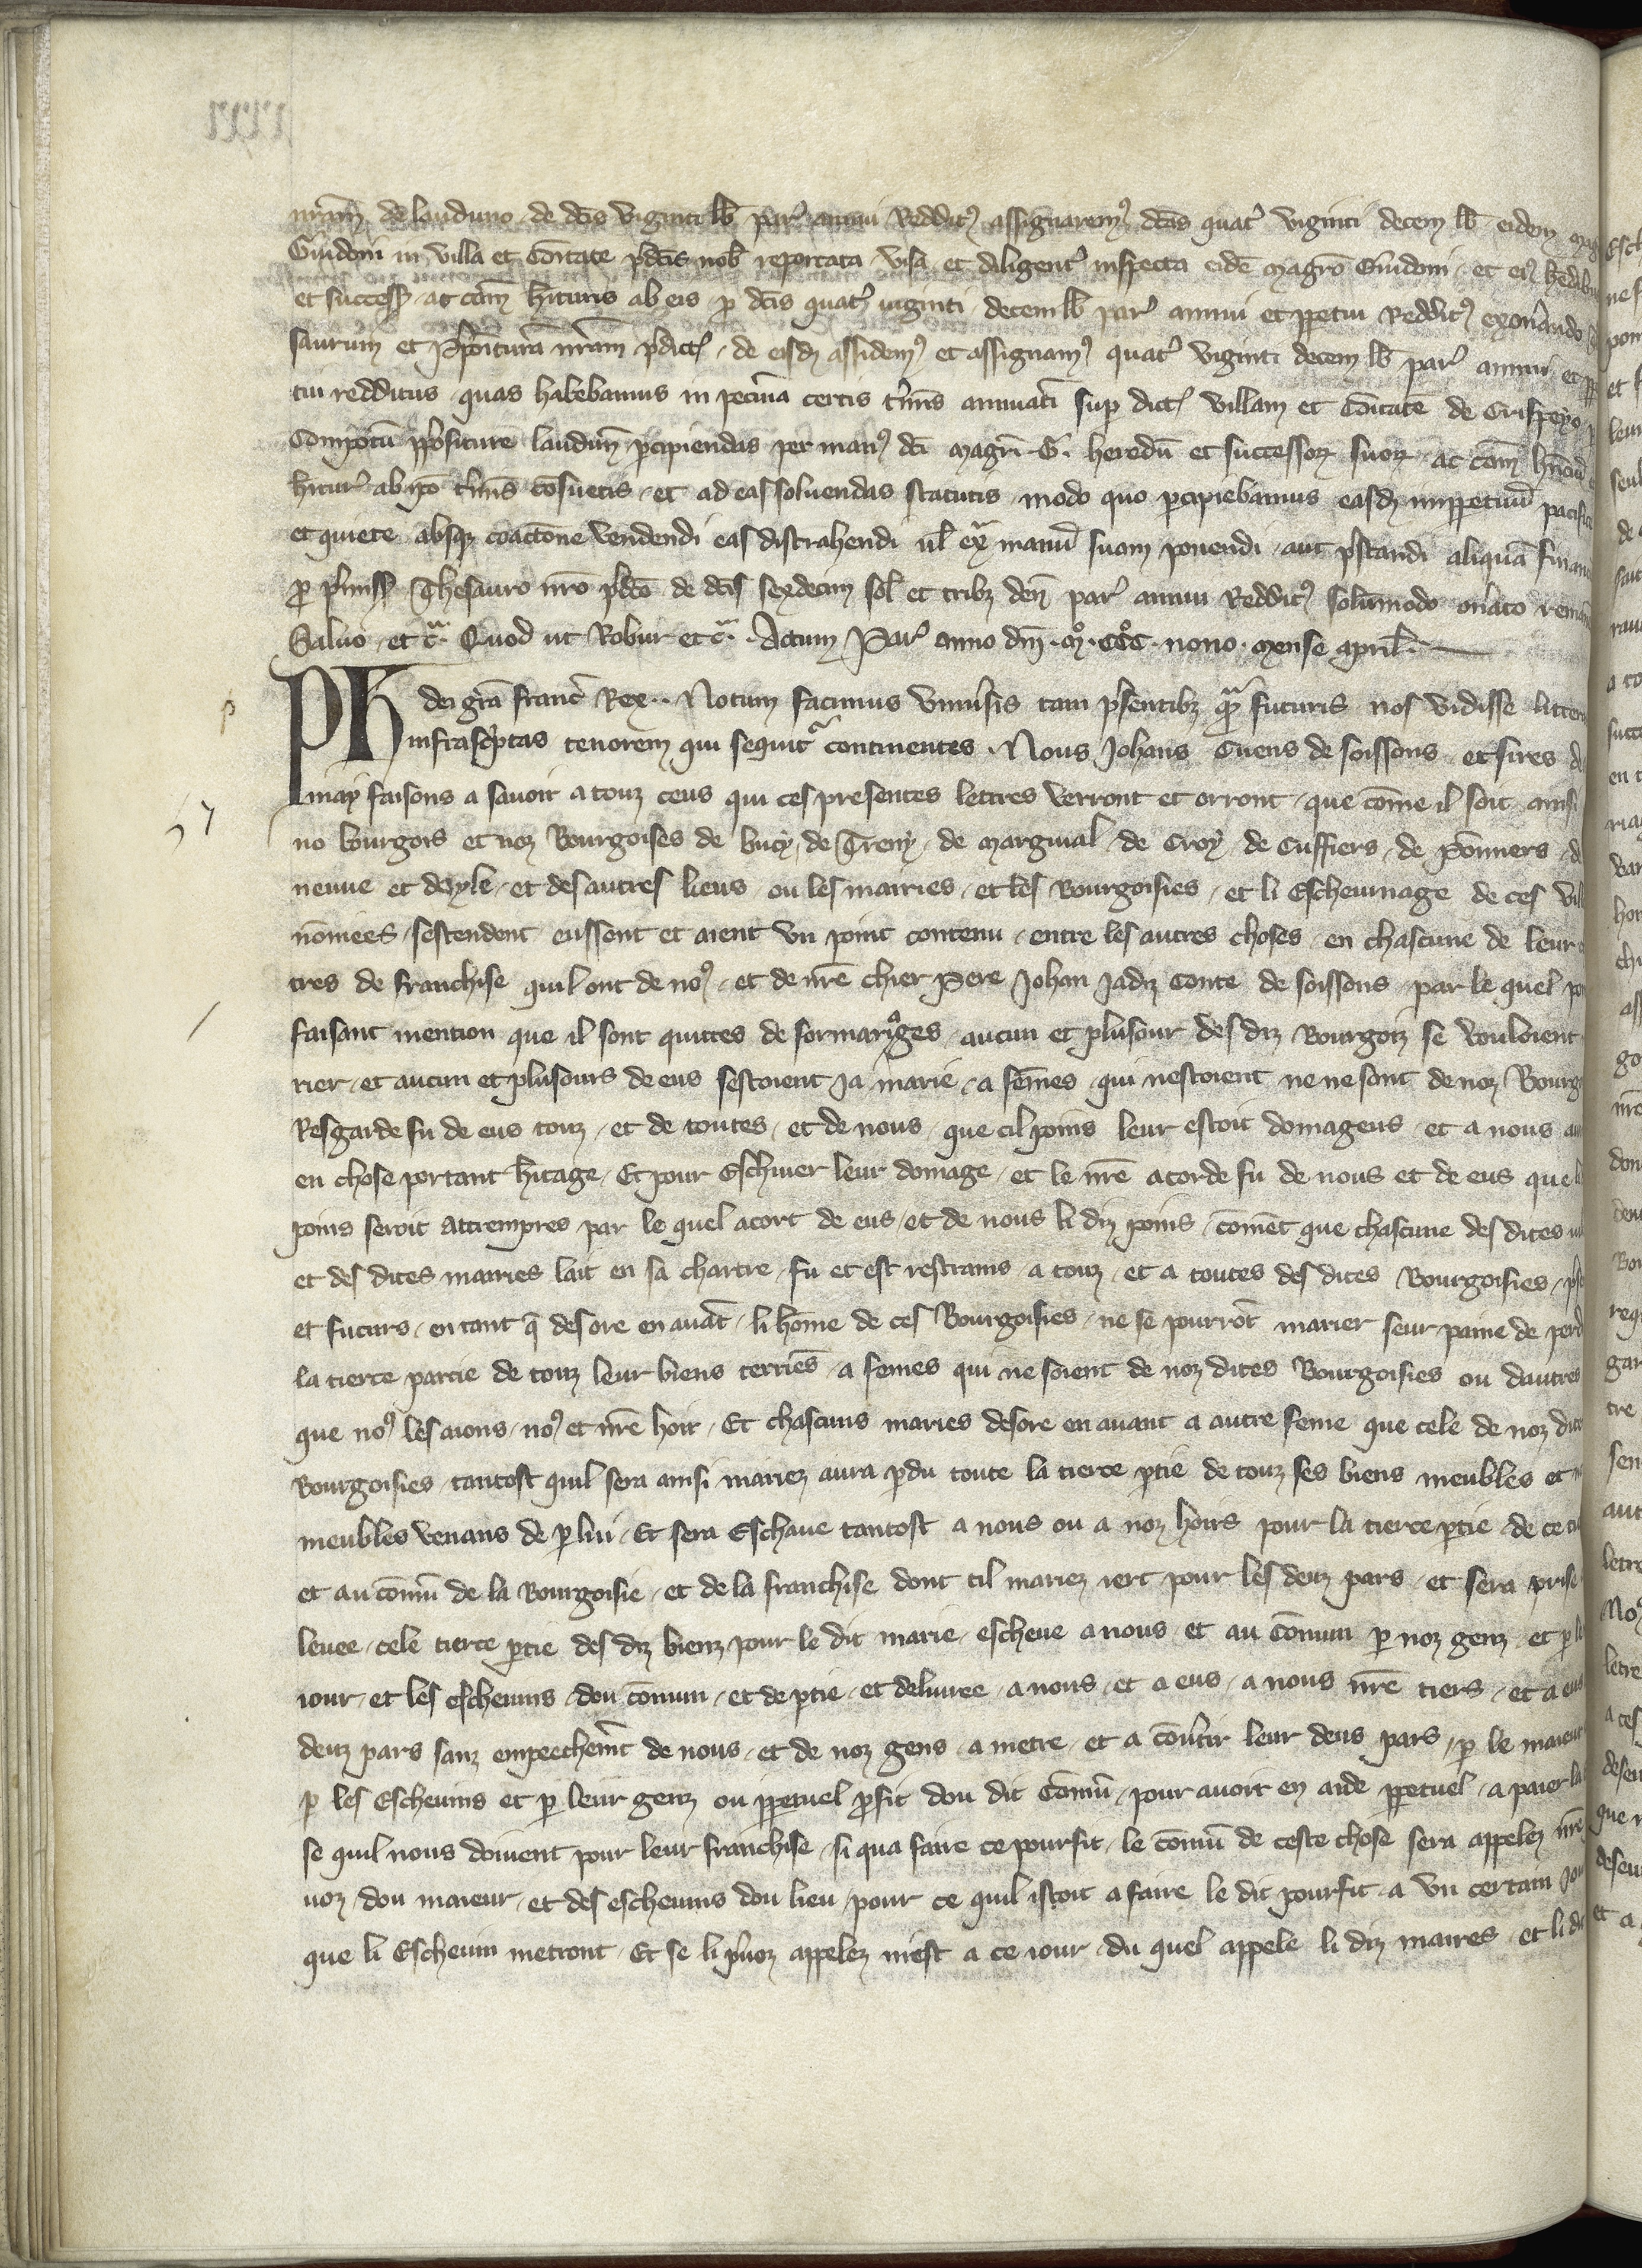 nr̄am de lauduno de dc̄is viginti lb̄ par̉ annui Reddit⁹ assignarem⁹ dc̄as quat̉ viginti decem lb̄ eidem
Guidoni in villa et cōitate p̄dc̄is nob̄ reportata visa et diligent̉ inspecta eidē magrō Guidoni et ei⁹ hēdib
et success̄ ac cām h̄ituris ab eis p̱ dc̄is quat̉ viginti decem lb̄ par̉ annui et ꝑpetui Reddit⁹ exon̉ando
saurum et p̄posituram nr̄am p̄dict̄ de eisdꝫ assidem⁹ et assignam⁹ quat̉ viginti decem lb̄ par̉ annui et
tui redditus quas habebamus in pecunia certis t̉mis annuatī sup̱ dict̄ villam et cōitatē de Crispeyo
Compotū p̄positure laudun̄ ꝑcipiendas per man⁹ dc̄i magr̄i G. heredū et successorꝫ suorꝫ ac cām
h̄itur̉ ab ip̄o t̉mis cōsuetis et ad eas soluendas statutis modo quo ꝑcipiebamus easdꝫ imꝑpetuū
et quiete absqꝫ coactione vendendi eas distrahendi ul̄ ex̄ manū suam ponendi aut p̄standi aliquā
ꝓ p̄miss̄ Thesauro nr̄o p̄dc̄o de dc̄is sexdecim sol̄ et tribꝫ den̄ par̉ annui Reddit⁹ solūmodo on̉ato
Saluo et c̄ᵃ. Quod ut Robur et c̄ᵃ. Actum Par̉ anno dn̄i .mͦ.cccͦ. nono. mense april̄.
Ph dei gr̄a franc̉ Rex.. Notum facimus vniủsis tam p̄sentibꝫ qᵃm futuris nos vidisse
infrasc̉ptas tenorem qui sequit̉ continentes. Nous Johans Cuens de soissons et sires
may faisons a sauoir a touz ceus qui ces presentes lettres verront et orront que cōme il soit ainsi
no bourgois et noz Bourgoises de bucy, de Treny, de marginal de Croy de Cuffiers de Pōmiers
neuue et deysle et des autres lieus ou les mairies et les Bourgoisies et li Escheuinage de ces
nōmees sestendent eussent et aient vn point contenu entre les autres choses en chascune de leur
tres de franchise quil ont de no⁹ et de nr̄e chier Pere Johan Jadiz Conte de soissons par le quel
faisant mention que il sont quittes de formariᵃges aucun et plusour des diz Bourgoiz se vouloient
rier et aucun et plusours de eus sestoient ja marie a fēmes qui nestoient ne ne sont de noz
Resgarde fu de eus touz et de toutes et de nous que cil poins leur estoit domageus et a nous
en chose portant h̄itage Et pour Eschiuer leur domage et le nr̄e acorde fu de nous et de eus que
poins seroit attrempres par le quel acort de eus et de nous li diz poins cōmēt que chascune des dites
et des dites mairies lait en sa chartre fu et est restrains a touz et a toutes des dites Bourgoisies
et futurs entant q̄ desore en auāt li hōme de ces Bourgoisies ne se pourrōt marier seur paine de
la tierce partie de touz leur biens terriēs a femes qui ne soient de noz dites Bourgoisies ou dautres
que no⁹ les aions no⁹ et nr̄e hoir Et chascuns maries desore en auant a autre feme que cele de noz
Bourgoisies tantost quil sera ainsi mariez aura ꝑdu toute la tierce ꝑtie de touz ses biens meubles et
meubles venans de ꝑ lui Et sera Escheue tantost a nous ou a noz hoirs pour la tierce ꝑtie de
et au cōmū de la Bourgoisie et de la franchise dont cil mariez iert pour les deuz pars et sera
leuee cele tierce ꝑtie des diz bienz pour le dit marie escheue a nous et au Cōmun ꝑ noz genz et
iour et les escheuins dou cōmun et de ꝑtie et deliuree a nous et a eus a nous nr̄e tiers et a eus
deuz pars sanz empeechem̄t de nous et de noz gens a metre et a cōủtir leur deus pars ꝑ le maieur
ꝑ les Escheuins et ꝑ leur genz ou ꝑpetuel ꝓfit dou dit Cōmū pour auoir en aide ꝑpetuel a paier
se quil nous doiuent pour leur franchise si qua faire ce pourfit le cōmū de ceste chose sera appelez
uoz dou maieur et des escheuins dou lieu pour ce quil istoit a faire le dit pourfit a vn certain
que li Escheuin metront Et se li p̄uoz appelez niest a ce iour du quel appele li diz maires et li